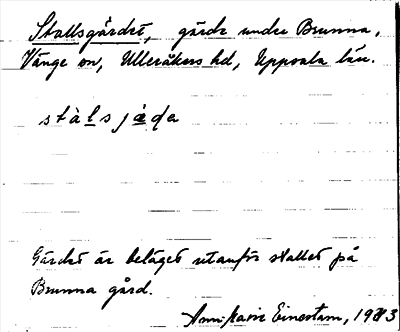 Stallsgärdet, gärde under Brunna,
Vänge sn, Ulleråkers hd, Uppsala län.
stàlsjäda
Gärdet är beläget utanför stallet på
Brunna gård.
Ann-Marie Einerstam, 1983